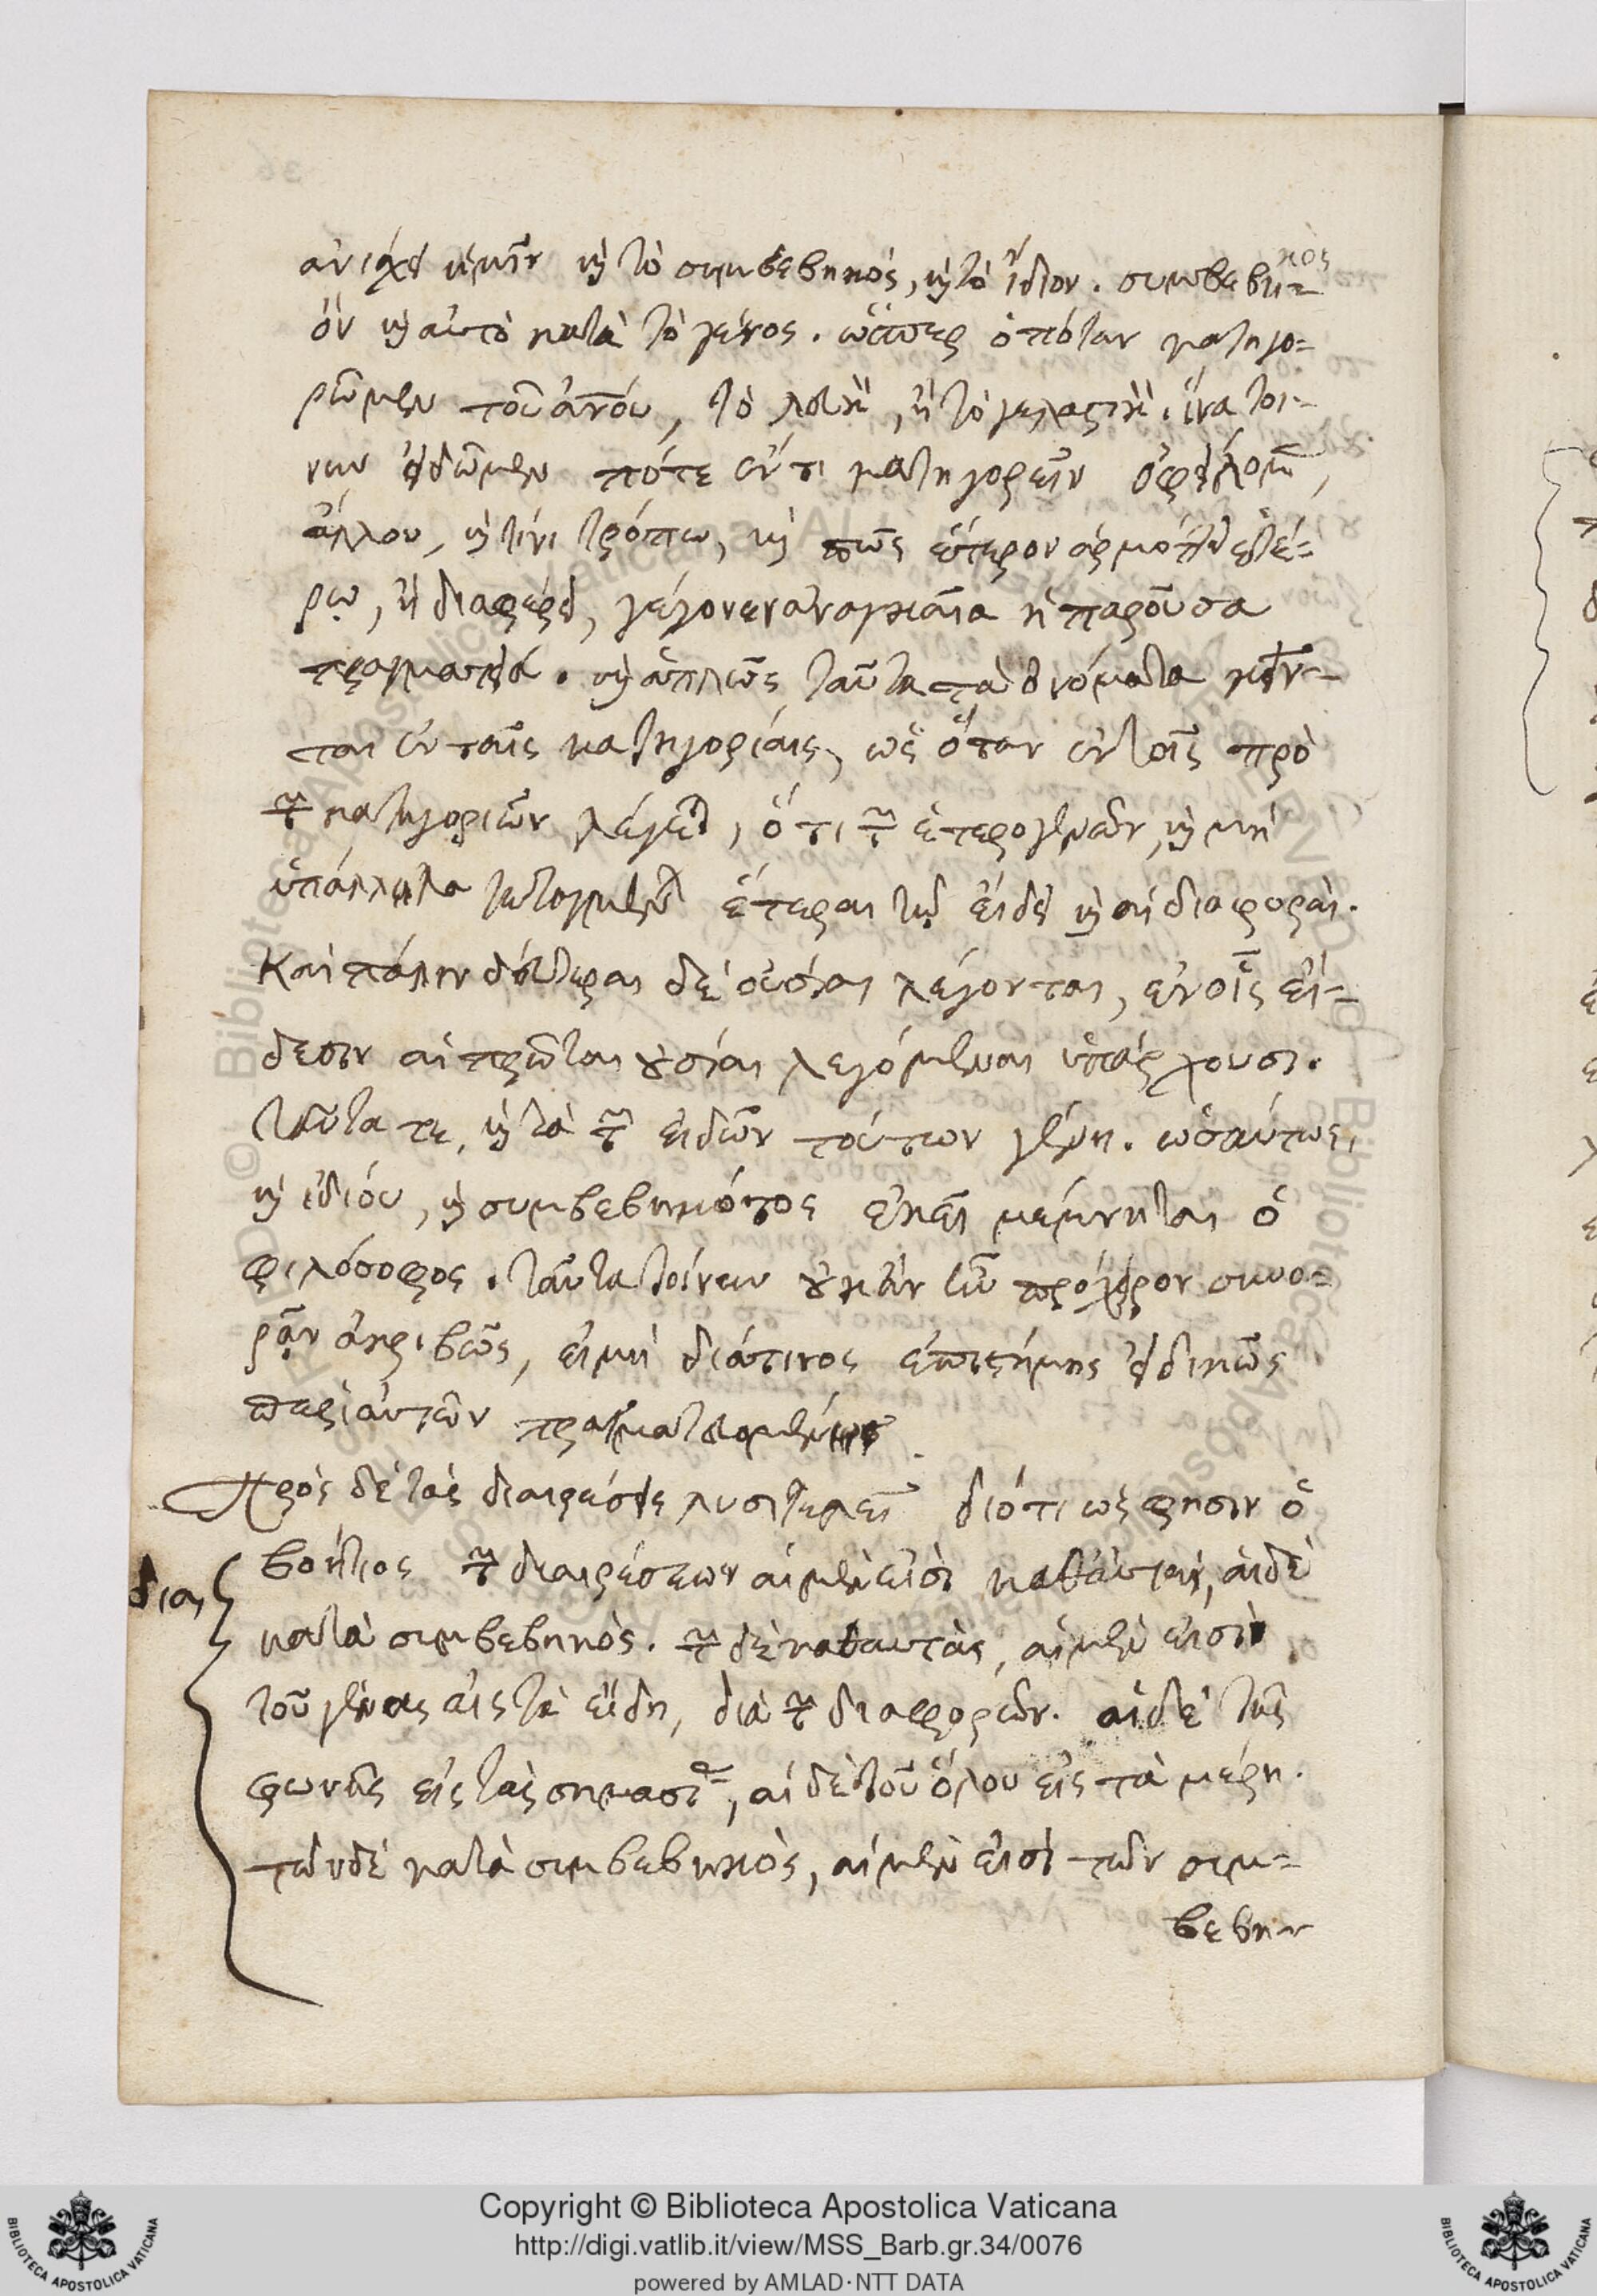 ἀνίσχει ἡμῖν καὶ τὸ συμβεβηκός, καὶ τὸ ἴδιον. συμβεβηκὸς
ὂν καὶ αὐτὸ κατὰ τὸ γένος. ὥσπερ ὁπόταν κατηγο=
ρῶμεν τοῦ ἀνου, τὸ λευκὸν, ἢ τὸ γελαστικὸν. ἵνα τοί-
νυν εἰδῶμεν πότε ἕν τι κατηγορεῖν ὀφείλομεν,
ἄλλου, καὶ τίνι τρόπω, καὶ πῶς ἕτερον ἁρμόττει ἑτέ=
ρῳ, ἢ διαφέρει, γέγονεν ἀναγκαῖα ἡ παροῦσα
πραγματεία. καὶ ἁπλῶς ταῦτα τὰ ὀνόματα κεῖν-
ται ἐν ταῖς κατηγορίαις, ὡς ὅταν ἐν τοῖς πρὸ
τῶν κατηγοριῶν λέγεται, ὅτι τῶν ἑτερογενῶν, καὶ μὴ
ὑπάλληλα τεταγμένων ἕτεραι τῷ εἴδει καὶ αἱ διαφοραί.
Καὶ πάλιν δεύτεραι δὲ οὐσίαι λέγονται, ἐν οἷς εἴ-
δεσιν αἱ πρῶται οὐσίαι λεγόμεναι ὑπάρχουσι.
ταῦτα τε, καὶ τὰ τῶν εἰδῶν τούτων γένη. ὡσαύτως,
καὶ ἰδίου, καὶ συμβεβηκότος ἐκεῖ μέμνηται ὁ
φιλόσοφος. ταῦτα τοίνυν οὐκ ἂν ἦν πρόχειρον συνο=
ρᾷν ἀκριβῶς, εἰμὴ διάτινος ἐπιστήμης εἰδικῶς
περὶ αὐτῶν πραγματευομένης
Πρὸς δὲ τὰς διαιρέσεις λυσιτελεῖ διότι ὡς φησιν ὁ
βοήτιος τῶν διαιρέσεων αἱ μὲν εἰσὶ καθ᾽αὑτάς, αἱ δὲ
διαι
κατὰ συμβεβηκὸς. τῶν δὲ καθαυτὰς, αἱ μὲν εἰσὶ
τοῦ γένους εἰς τὰ εἴδη, διὰ τῶν διαφορῶν. αἱ δὲ τῆς
φωνῆς εἰς τὰς σημασίας, αἱ δὲ τοῦ ὅλου εἰς τὰ μέρη.
τῶν δὲ κατὰ συμβεβηκὸς, αἱ μὲν εἰσὶ τῶν συμ-
βεβηκ
Copyright © Biblioteca Apostolica Vaticana
http://digi.vatlib.it/view/MSS_Barb.gr.34/0076
powered by AMLAD·NTT DATA
BIBLIOTECA APOSTOLICA VATICANA
BIBLIOTECA APOSTOLICA VATICANA